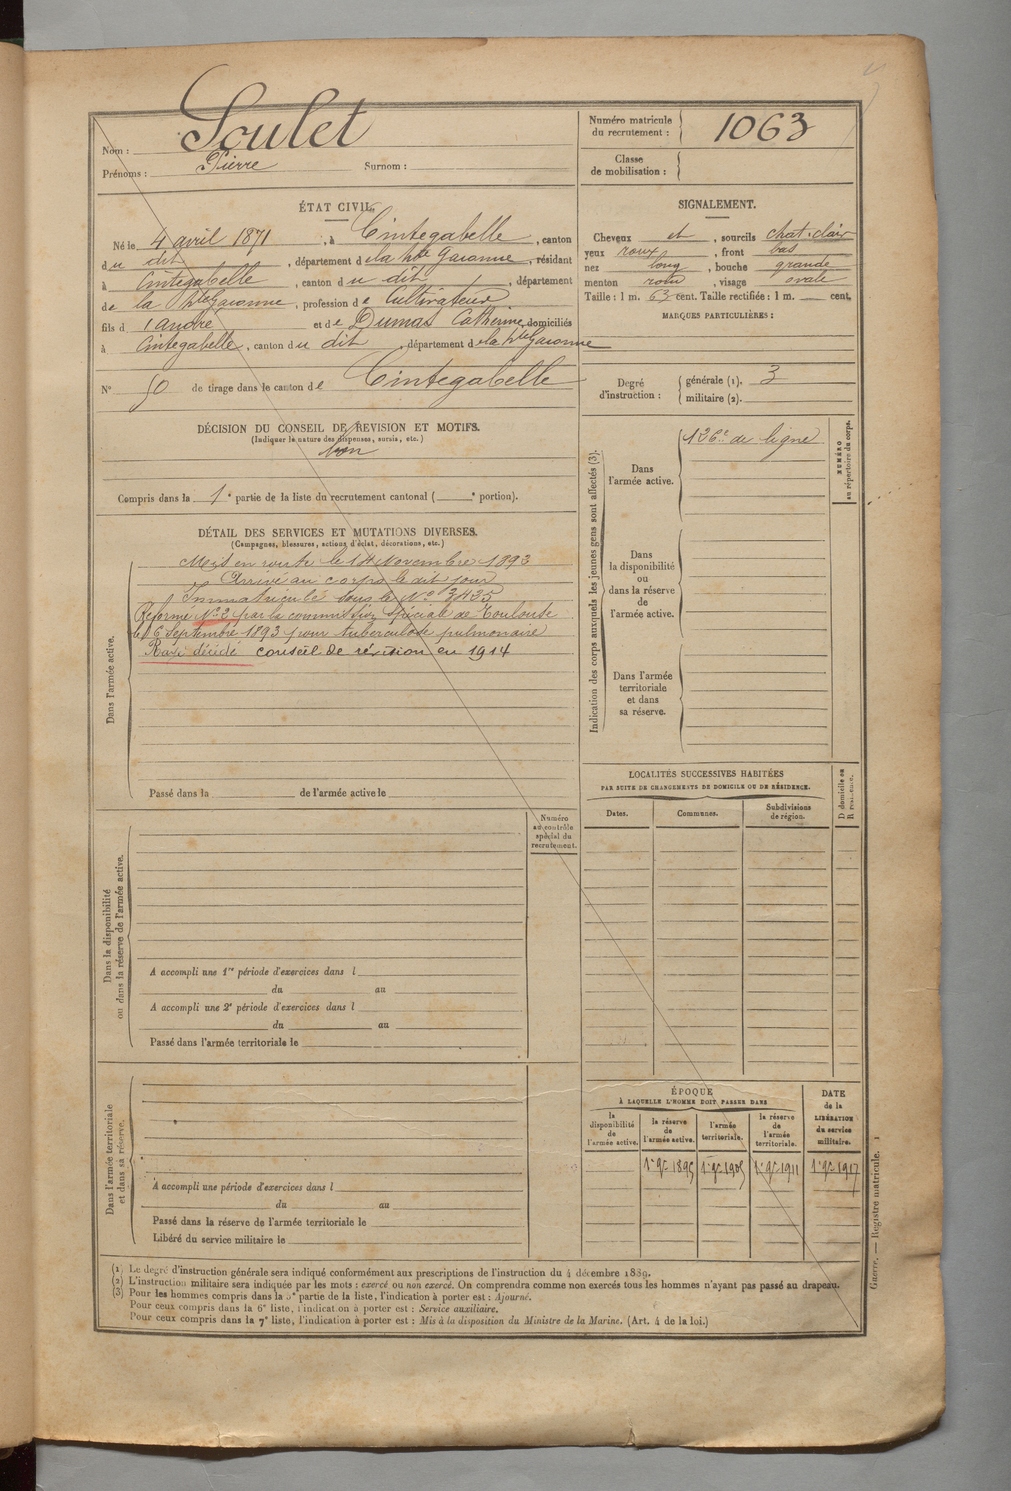 Nom : Soulet
Prénoms : Pierre Surnom :
Numéro matricule du recrutement : 1063
Classe de mobilisation :
ÉTAT CIVIL.
Né le 4 avril 1871, à Cintegabelle, canton
du dit, département de la hte Garonne, résidant
à Cintegabelle, canton du dit, département
de la hte Garonne, profession de Cultivateur
fils d'André et de Dumas Catherine, domiciliés
à Cintegabelle, canton du dit, département de la hte Garonne
N° 50 de tirage dans le canton de Cintegabelle
SIGNALEMENT.
Cheveux et, sourcils chat. clair
yeux roux, front bas
nez long, bouche grande
menton rond, visage ovale
Taille : 1 m. 63 cent. Taille rectifiée : 1 m. cent.
MARQUES PARTICULIÈRES :
Degré d'instruction : générale (1). 3
militaire (2).
DÉCISION DU CONSEIL DE REVISION ET MOTIFS.
(Indiquer la nature des dispenses, sursis, etc.)
bon
Compris dans la 1e partie de la liste du recrutement cantonal ( e portion).
DÉTAIL DES SERVICES ET MUTATIONS DIVERSES.
(Campagnes, blessures, actions d'éclat, décorations, etc.)
Dans l'armée active.
Mis en route le 14 Novembre 1893
Arrivé au corps le dit jour
Immatriculé sous le N° 3435
Réformé N° 2 par la commission spéciale de Toulouse
le 16 Septembre 1893 pour tuberculose pulmonaire
décidé conseil de révision en 1914
Passé dans la de l'armée active le
Indication des corps auxquels les jeunes gens sont affectés (3).
NUMÉRO au répertoire du corps.
Dans l'armée active.
126e de ligne
Dans la disponibilité ou dans la réserve de l'armée active.
Dans l'armée territoriale et dans sa réserve.
LOCALITÉS SUCCESSIVES HABITÉES
PAR SUITE DE CHANGEMENTS DE DOMICILE OU DE RÉSIDENCE.
Dates. Communes. Subdivisions de région.
D domicile ou R résidence.
Numéro au contrôle spécial du recrutement.
Dans la disponibilité ou dans la réserve de l'armée active.
A accompli une 1re période d'exercices dans l
du au
A accompli une 2e période d'exercices dans l
du au
Passé dans l'armée territoriale le
Dans l'armée territoriale et dans sa réserve.
A accompli une période d'exercices dans l
du au
Passé dans la réserve de l'armée territoriale le
Libéré du service militaire le
ÉPOQUE
À LAQUELLE L'HOMME DOIT PASSER DANS
la disponibilité de l'armée active.
la réserve de l'armée active.
l'armée territoriale.
la réserve de l'armée territoriale.
DATE de la LIBÉRATION du service militaire.
1er 9bre 1895 1er 9bre 1905 1er 9bre 1911 1er 9bre 1917
(1) Le degré d'instruction générale sera indiqué conformément aux prescriptions de l'instruction du 4 décembre 1889.
(2) L'instruction militaire sera indiquée par les mots : exercé ou non exercé. On comprendra comme non exercés tous les hommes n'ayant pas passé au drapeau.
(3) Pour les hommes compris dans la 5e partie de la liste, l'indication à porter est : Ajourné.
Pour ceux compris dans la 6e liste, l'indication à porter est : Service auxiliaire.
Pour ceux compris dans la 7e liste, l'indication à porter est : Mis à la disposition du Ministre de la Marine. (Art. 4 de la loi.)
Guerre. — Registre matricule. 1